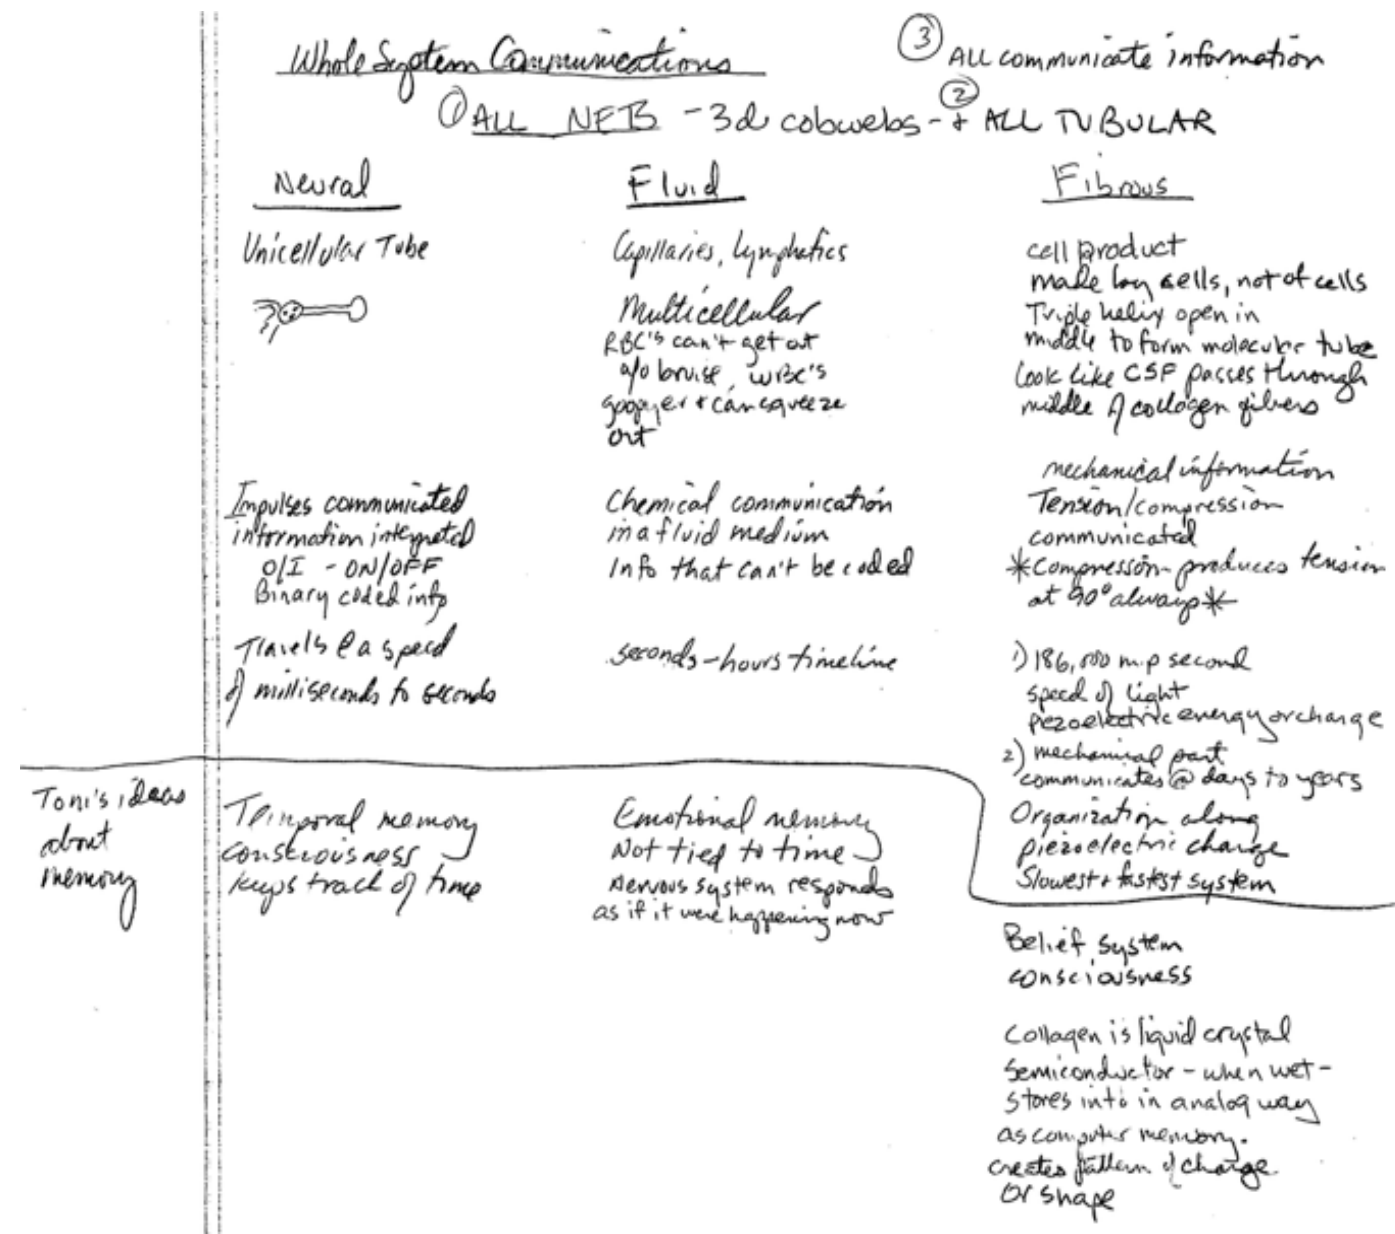 Whole System Communications
③ ALL communicate information
① ALL NETS - 3d cobwebs - ② + ALL TUBULAR
Neural
Unicellular Tube
Impulses communicated
information interpreted
O/I - ON/OFF
Binary coded info
Travels @ a speed
of milliseconds to seconds
Fluid
Capillaries, Lymphatics
Multicellular
RBC's can't get out
w/o bruise, WBC's
gooyer + can squeeze
out
Chemical communication
in a fluid medium
Info that can't be coded
seconds-hours timeline
Fibrous
cell product
made by cells, not of cells
Triple helix open in
middle to form molecular tube
look like CSF passes through
middle of collagen fibers
mechanical information
Tension/compression
communicated
*Compression produces tension
at 90° always*
1) 186,000 m.p second
speed of light
piezoelectric energy or change
2) mechanical part
communicates @ days to years
Organization along
piezoelectric charge
Slowest + fastest system
Toni's ideas
about
memory
Temporal memory
consciousness
keeps track of time
Emotional memory
Not tied to time
Nervous system responds
as if it were happening now
Belief system
consciousness
Collagen is liquid crystal
Semiconductor - when wet -
stores info in analog way
as computer memory.
creates pattern of charge
or shape